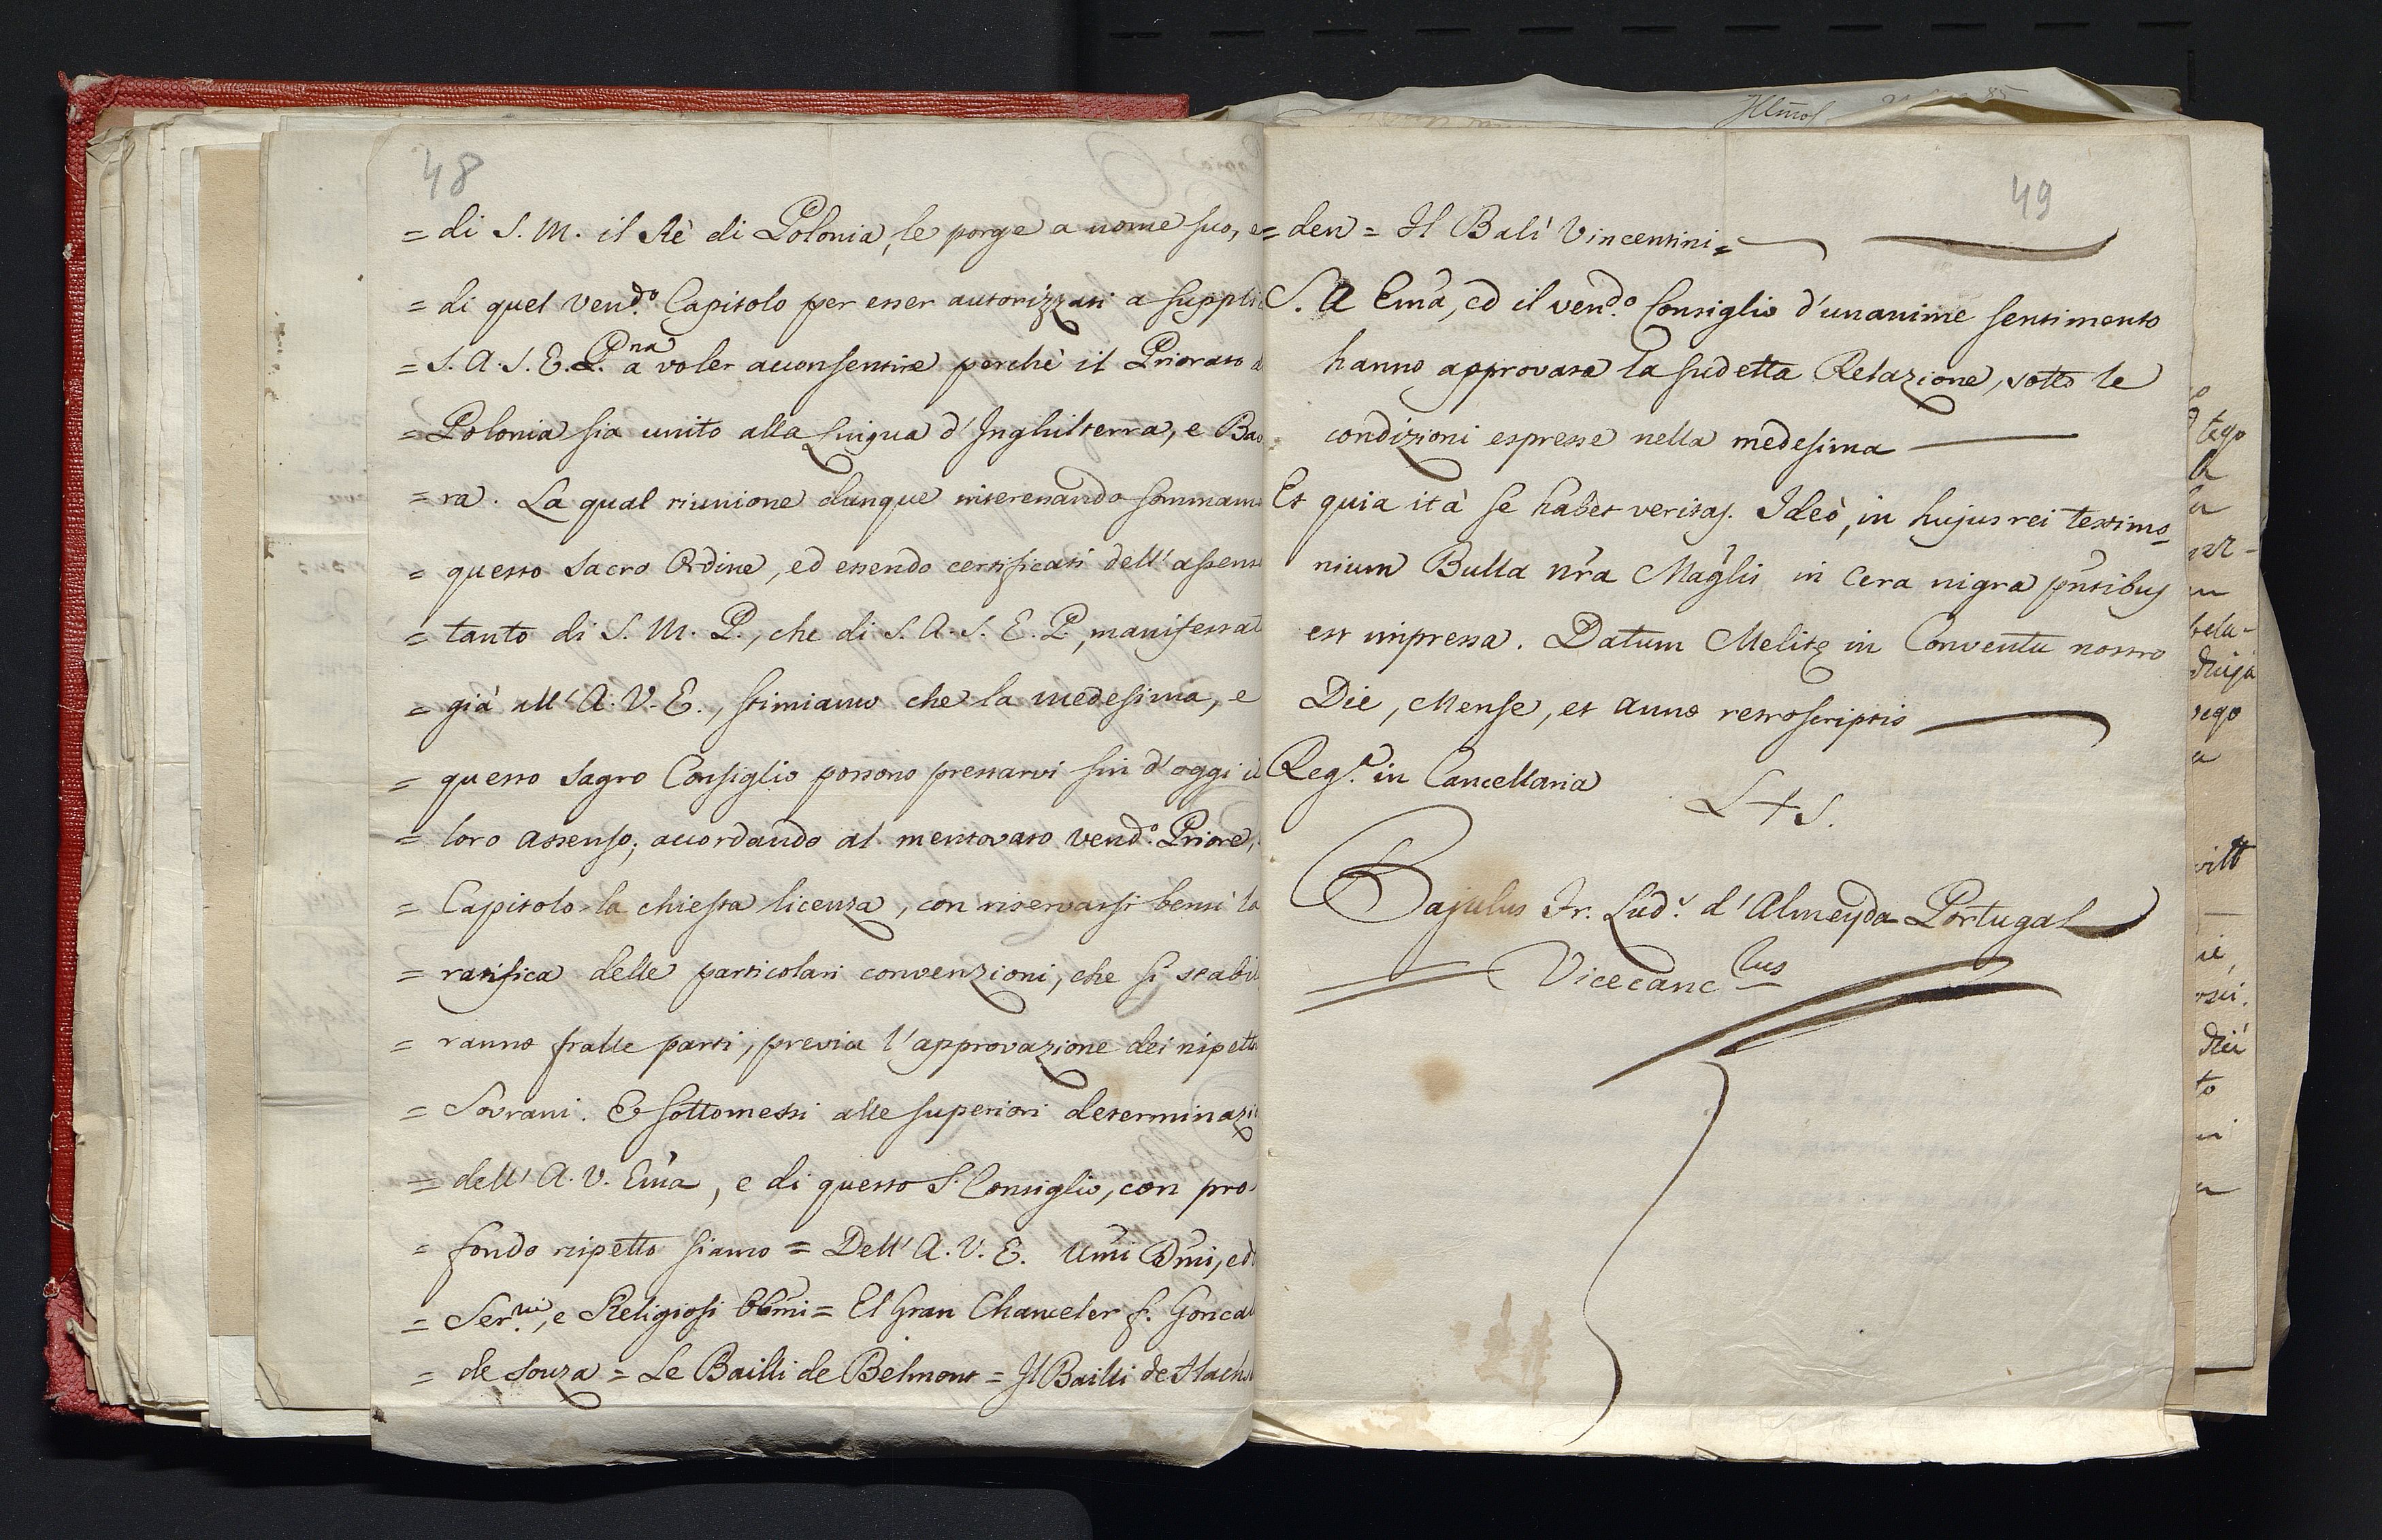 48
= di S. M. il Rè di Polonia, le porge a nome suo, e
= di quel Vend.º Capitolo per esser autorizzati a suppli
= S. A. S. E. P.na a voler acconsentire perchè il Priorato
= Polonia sia unito alla Lingua d'Inghilterra, e Bav
= ra. La qual riunione dunque interessando sommam
= questo Sacro Ordine, ed essendo certificati dell'assens
= tanto di S. M. P., che di S. A. S. E. P., manifestat
= già all'A. V. E., stimiamo che la medesima, e
= questo Sagro Consiglio possono prestarvi sin d'oggi il
= loro assenso; accordando al mentovato Vend.º Priore,
= Capitolo la chiesta licenza, con riservarsi bensì la
= ratifica delle particolari convenzioni, che si stabil
= ranno fralle parti, previa l'approvazione dei rispett
= Sovrani. E sottomessi alle superiori determinazi
= dell'A. V. Em̃a, e di questo S. Consiglio, con pro
= fondo rispetto siamo = Dell'A. V. E. Um̃i Dm̃i, ed
= Ser.vi, e Religiosi Obm̃i = El Gran Chanceler f. Goncal
= de Souza = Le Bailli de Belmont = Il Bailli de Flachs
49
= den = Il Balì Vincentini =
S. A. Em̃a, ed il Vend.º Consiglio d'unanime sentimento
hanno approvata la sudetta Relazione, sotto le
condizioni espresse nella medesima
Et quia ità se habet veritas. Ideò, in hujus rei testimo_
nium Bulla nr̃a Mag̃lis in Cera nigra pñtibus
est impressa. Datum Melitę in Conventu nostro
Die, Mense, et Anno retroscriptis
Reg.ª in Cancellaria
L + S.
Bajulus Fr. Lud.s d'Almeyda Portugal
Vicecanc.lus